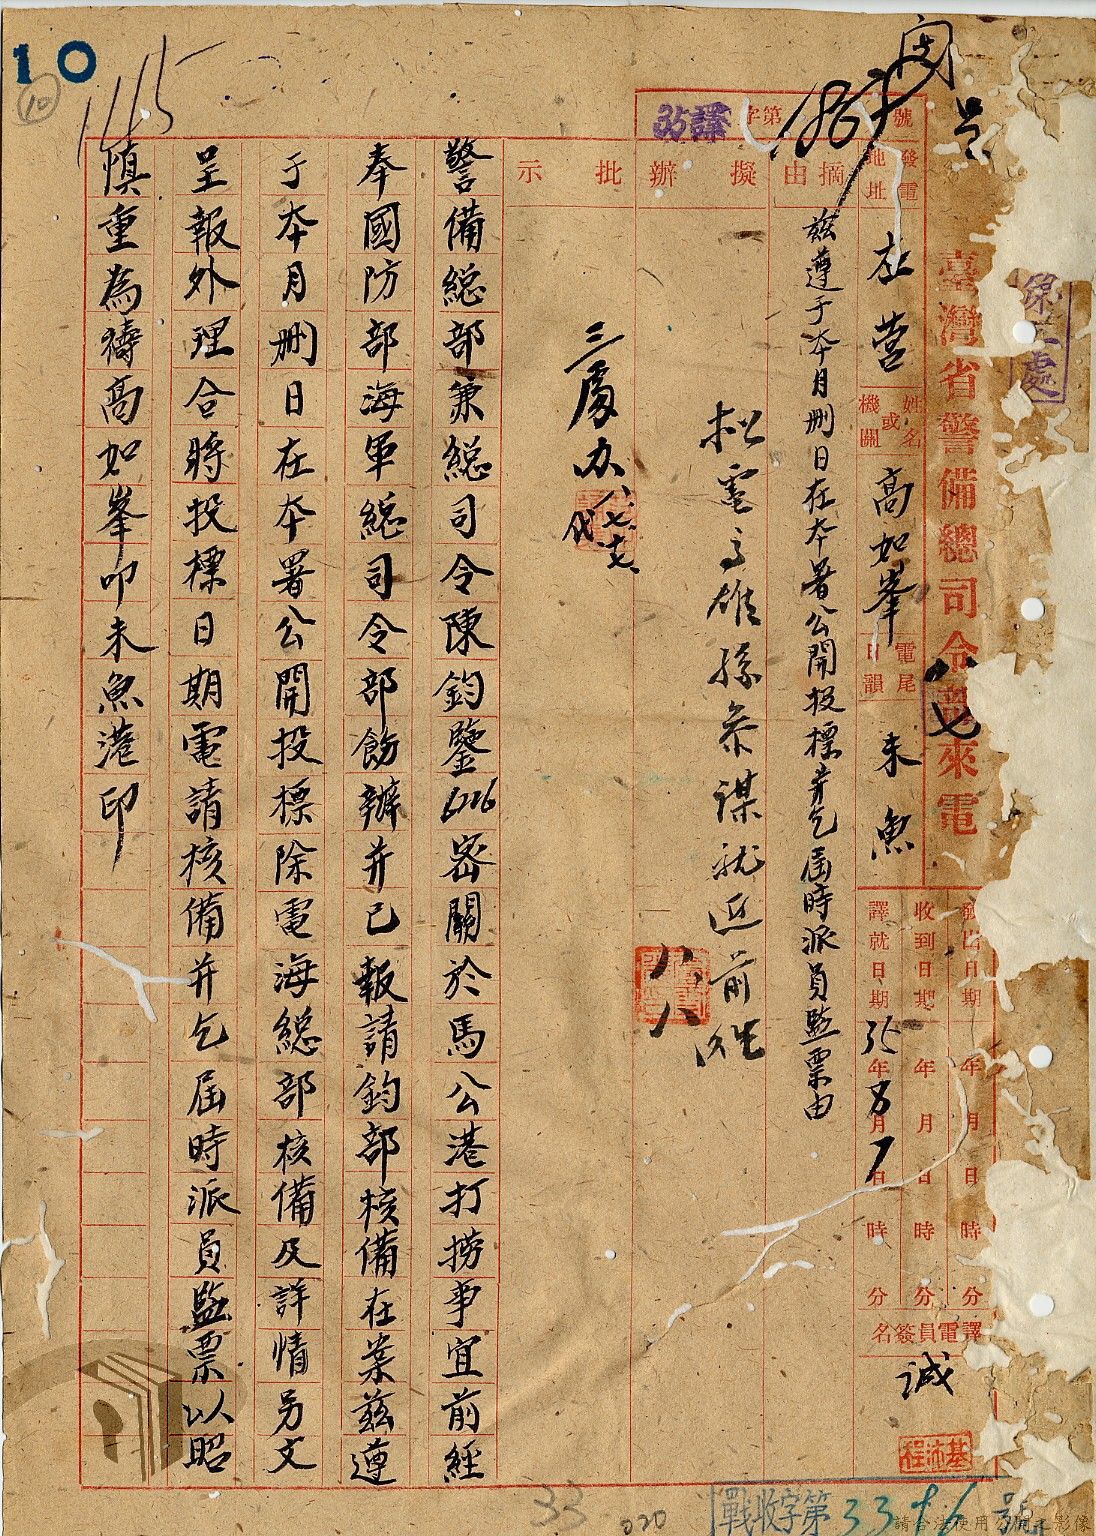 臺灣省警備總司令部來電
第三處
譯35字第1867號
發電地址 左營
姓名或機關 高如峯
電尾日韻 未魚
發出日期 年 月 日 時 分
收到日期 年 月 日 時 分
譯就日期 35年8月7日 時 分
譯電員簽名 誠
摘由 茲遵于本月刪日在本署公開投標並乞屆時派員監票由
擬辦
批示
三處办 代 八、七、
八、八
警備総部兼総司令陳鈞鑒6226密關於馬公港打撈事宜前經
奉國防部海軍総司令部飭辦并已報請鈞部核備在案茲遵
于本月刪日在本署公開投標除電海総部核備及詳情另文
呈報外理合將投標日期電請核備并乞屆時派員監票以昭
慎重為禱高如峯叩未魚港印
10
10
1115
戰收字第3396號
33
020
請合法使用公開之影像